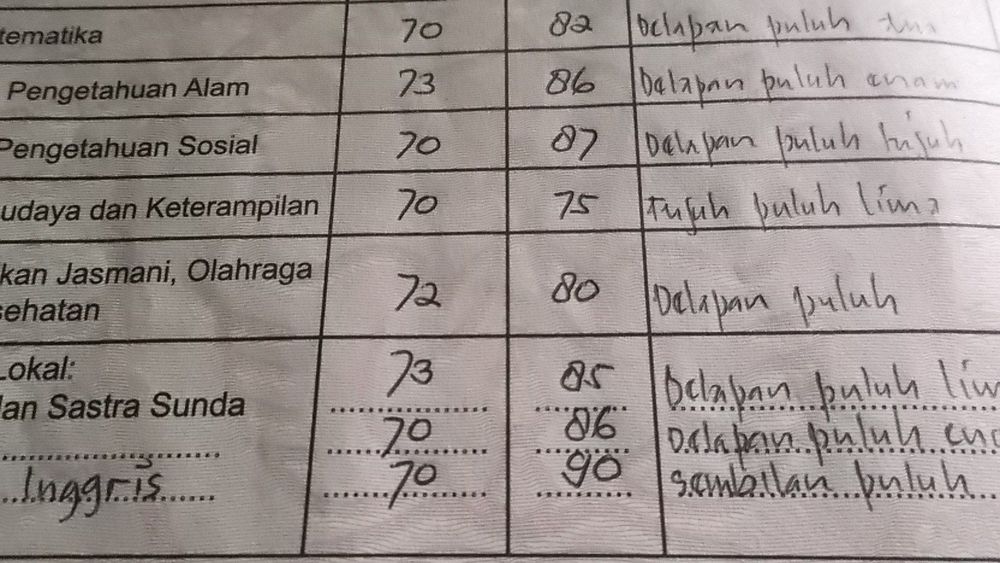 tematika 70 82 Delapan puluh dua
Pengetahuan Alam 73 86 Delapan puluh enam
Pengetahuan Sosial 70 87 Delapan puluh tujuh
udaya dan Keterampilan 70 75 Tujuh puluh lima
kan Jasmani, Olahraga
sehatan 72 80 Delapan puluh
Lokal: 73 85 Delapan puluh lim
lan Sastra Sunda
70 86 Delapan puluh ena
Inggris 70 90 Sembilan puluh